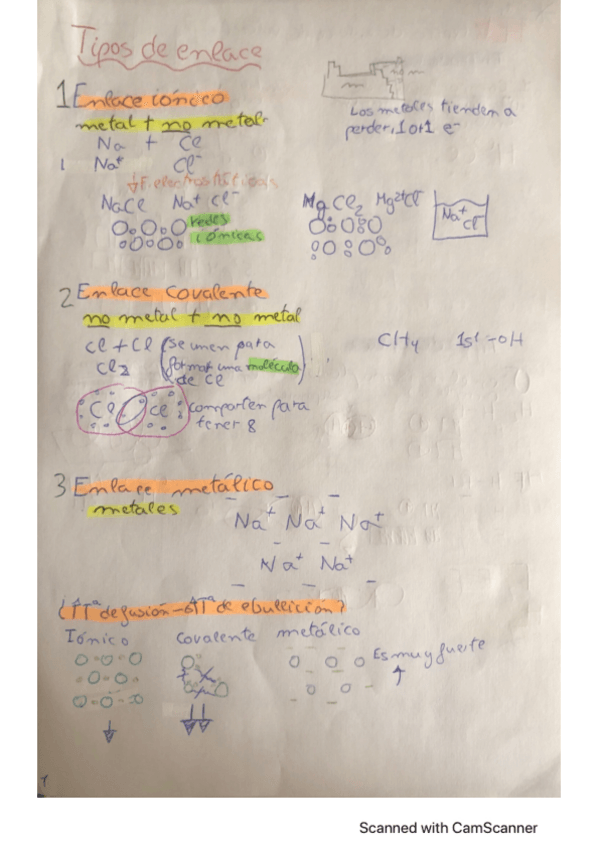 Tipos de enlace
1 Enlace iónico
metal + no metal
Los metales tienden a
perder 1 o +1 e-
Na + Cl
Na+ Cl-
F. electrostáticas
NaCl Na+ Cl-
redes
iónicas
MgCl2 Mg2+Cl
Na+
Cl
2 Enlace covalente
no metal + no metal
Cl + Cl (se unen para
Cl2 formar una molécula
de Cl)
CH4
Cl Cl comparten para
tener 8
3 Enlace metálico
metales
Na+ Na+ Na+
Na+ Na+
¿ Tª de fusión - Tª de ebullición?
Iónico covalente metálico
Es muy fuerte
Scanned with CamScanner